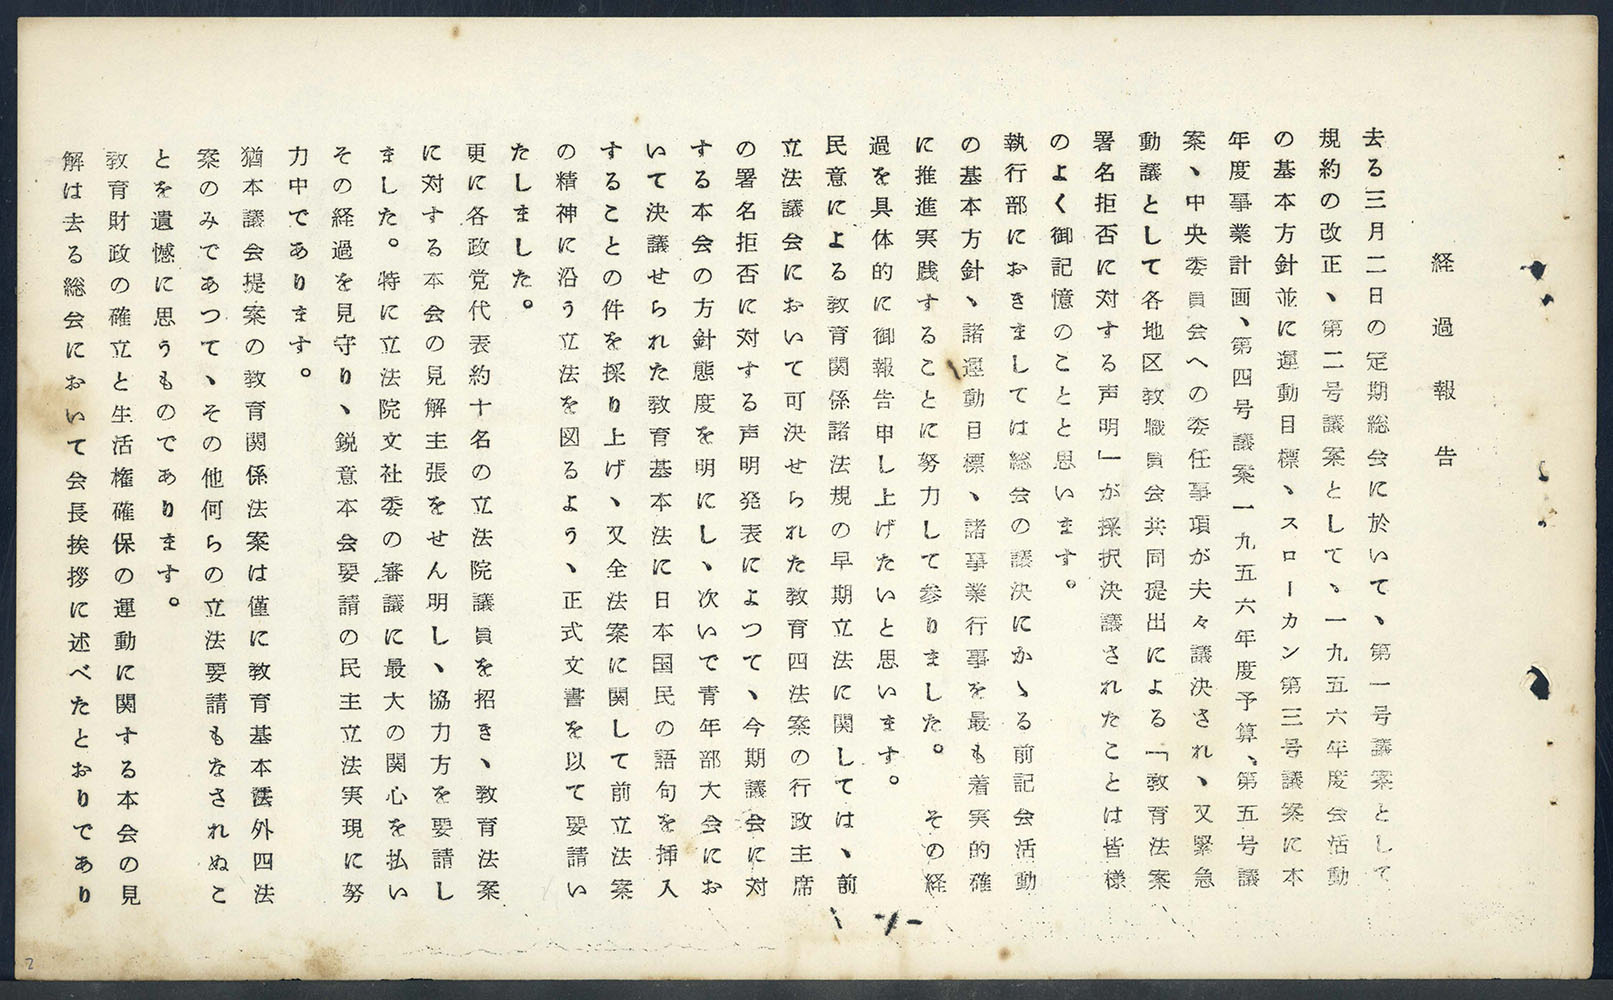 経過報告
去る三月二日の定期総会に於いて、第一号議案として
規約の改正、第二号議案として、一九五六年度会活動
の基本方針並に運動目標、スローカン第三号議案に本
年度事業計画、第四号議案一九五六年度予算、第五号議
案、中央委員会への委任事項が夫々議決され、又緊急
動議として各地区教職員会共同提出による「教育法案
署名拒否に対する声明」が採択決議されたことは皆様
のよく御記憶のことと思います。
執行部におきましては総会の議決にかゝる前記会活動
の基本方針、諸運動目標、諸事業行事を最も着実的確
に推進実践することに努力して参りました。 その経
過を具体的に御報告申し上げたいと思います。
民意による教育関係諸法規の早期立法に関しては、前
立法議会において可決せられた教育四法案の行政主席
の署名拒否に対する声明発表によつて、今期議会に対
する本会の方針態度を明にし、次いで青年部大会にお
いて決議せられた教育基本法に日本国民の語句を挿入
することの件を採り上げ、又全法案に関して前立法案
の精神に沿う立法を図るよう、正式文書を以て要請い
たしました。
更に各政党代表約十名の立法院議員を招き、教育法案
に対する本会の見解主張をせん明し、協力方を要請し
ました。特に立法院文社委の審議に最大の関心を払い
その経過を見守り、鋭意本会要請の民主立法実現に努
力中であります。
猶本議会提案の教育関係法案は僅に教育基本法外四法
案のみであつて、その他何らの立法要請もなされぬこ
とを遺憾に思うものであります。
教育財政の確立と生活権確保の運動に関する本会の見
解は去る総会において会長挨拶に述べたとおりであり
-1-
2